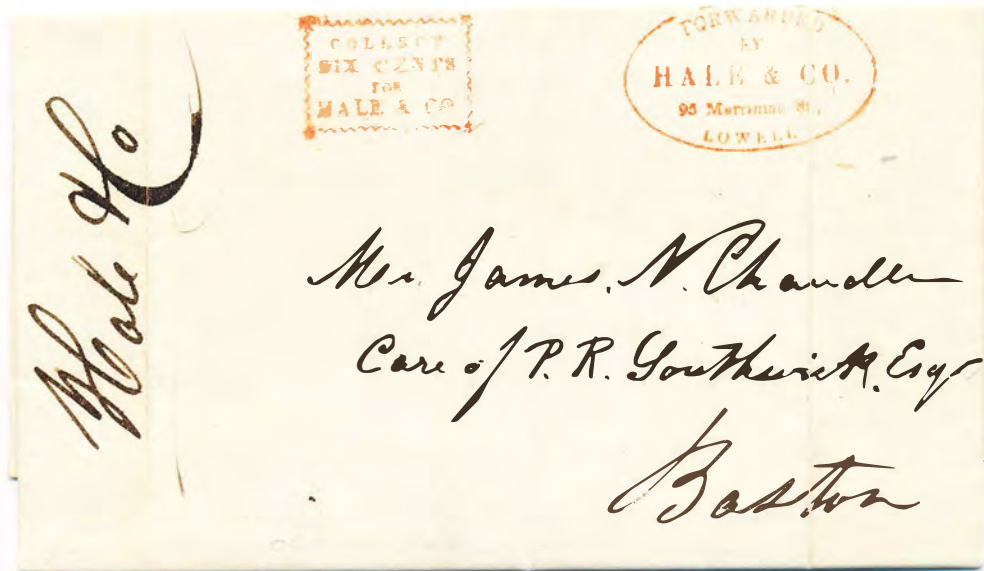 COLLECT
SIX CENTS
FOR
HALE & CO
FORWARDED
BY
HALE & CO.
95 Merrimac St.,
LOWELL
Hale & Co
Mr. James. N. Chandler
Care of P. R. Southwick, Esqr
Boston